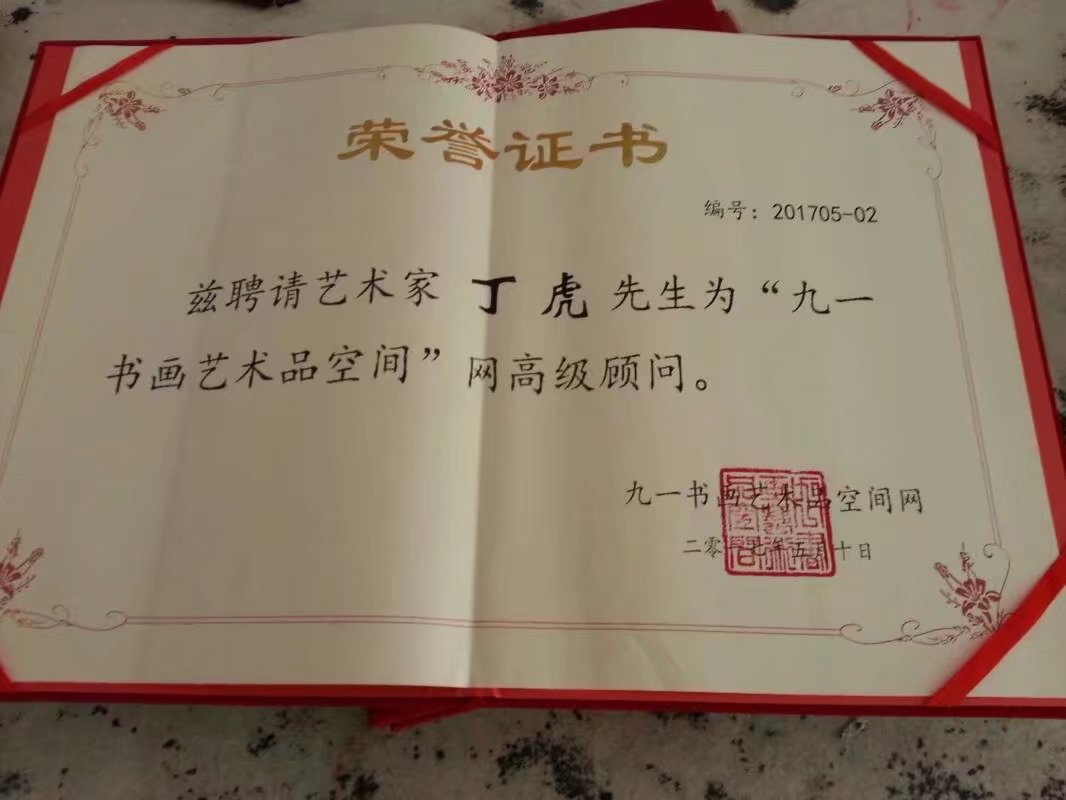 荣誉证书
编号：201705-02
兹聘请艺术家 丁虎 先生为“九一
书画艺术品空间”网高级顾问。
九一书画艺术品空间网
二零一七年五月十日